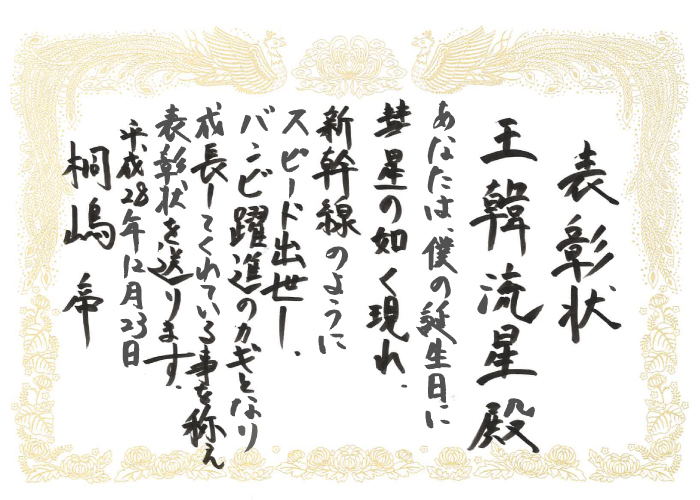 表彰状
王韓流星殿
あなたは、僕の誕生日に
彗星の如く現れ、
新幹線のように
スピード出世し、
バンビ躍進のカギとなり
成長してくれている事を称え
表彰状を送ります。
平成28年12月23日
桐嶋帝